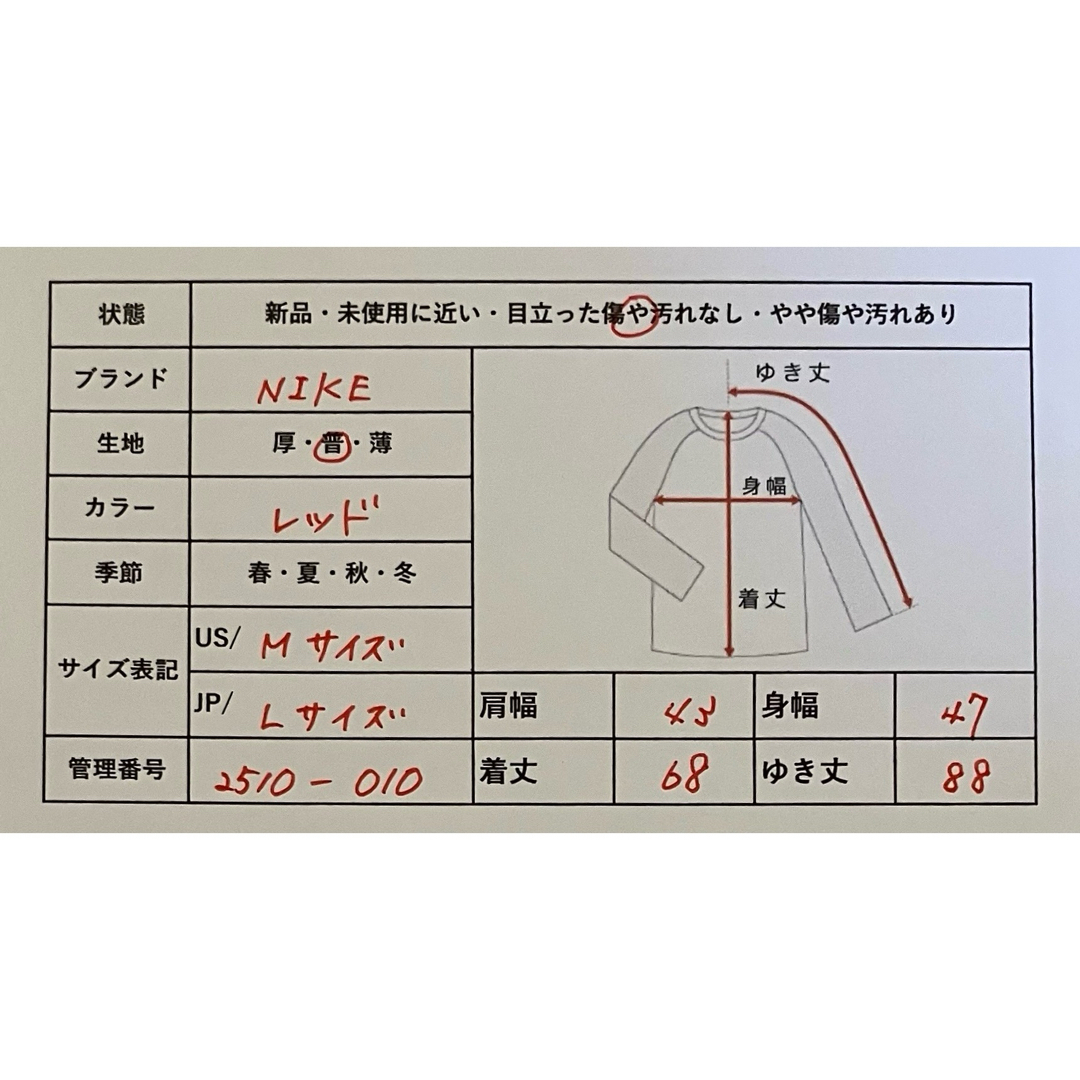 状態 新品・未使用に近い・目立った傷や汚れなし・やや傷や汚れあり
ブランド NIKE
生地 厚・普・薄
カラー レッド
季節 春・夏・秋・冬
サイズ表記 US/ Mサイズ
JP/ Lサイズ
ゆき丈
身幅
着丈
肩幅 45 身幅 47
管理番号 2510-010 着丈 68 ゆき丈 88